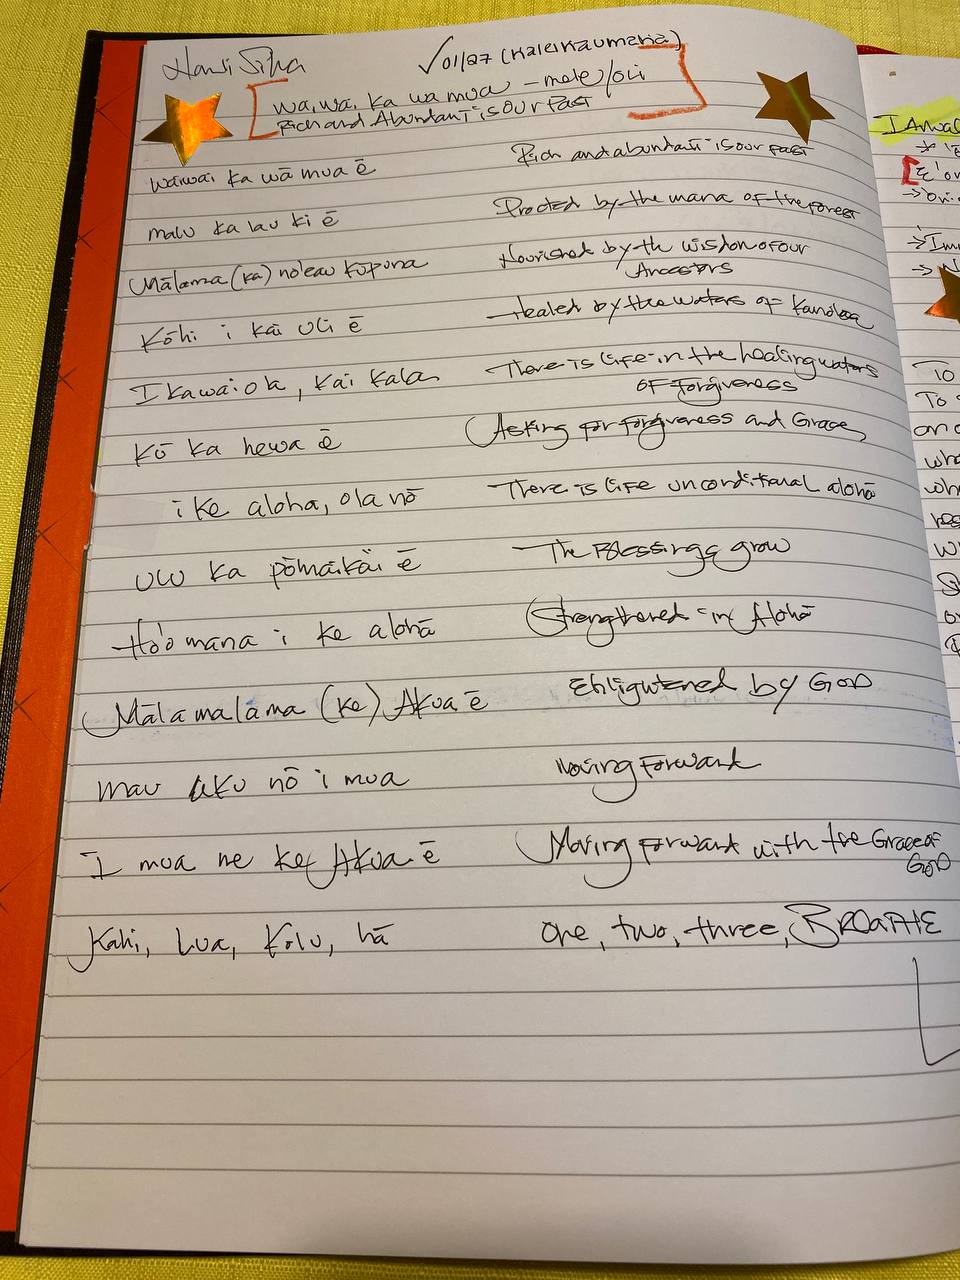 √01/27 (Kaleikaumaka)
Wai wai ka wa mua - mele/oli
Rich and Abundant is our Past
waiwai ka wā mua ē
Rich and abundant is our Past
malu ka lau ki ē
Procted by the mana of the forest
Mālama (ka) no'eau kūpuna
Nourished by the wisdon of our
Ancestors
Kōhi i kai uli ē
Healed by the waters of Kanoloa
I ka wai ola, kai kala
There is life in the healing waters
of Forgiveness
Kū ka hewa ē
Asking for forgiveness and Grace,
i ke aloha, ola nō
There is life unconditional aloha
ulu ka pōmaikai ē
The Blessings grow
Ho'omana i ke aloha
Strengthened in Aloha
Mālamalama (ke) Akua ē
Enlightened by GOD
mau aku nō i mua
Moving forward
I mua me ke Akua ē
Moving forward with the Grace of
GOD
Kahi, Lua, Kolu, hā
One, two, three, BREATHE
To
To